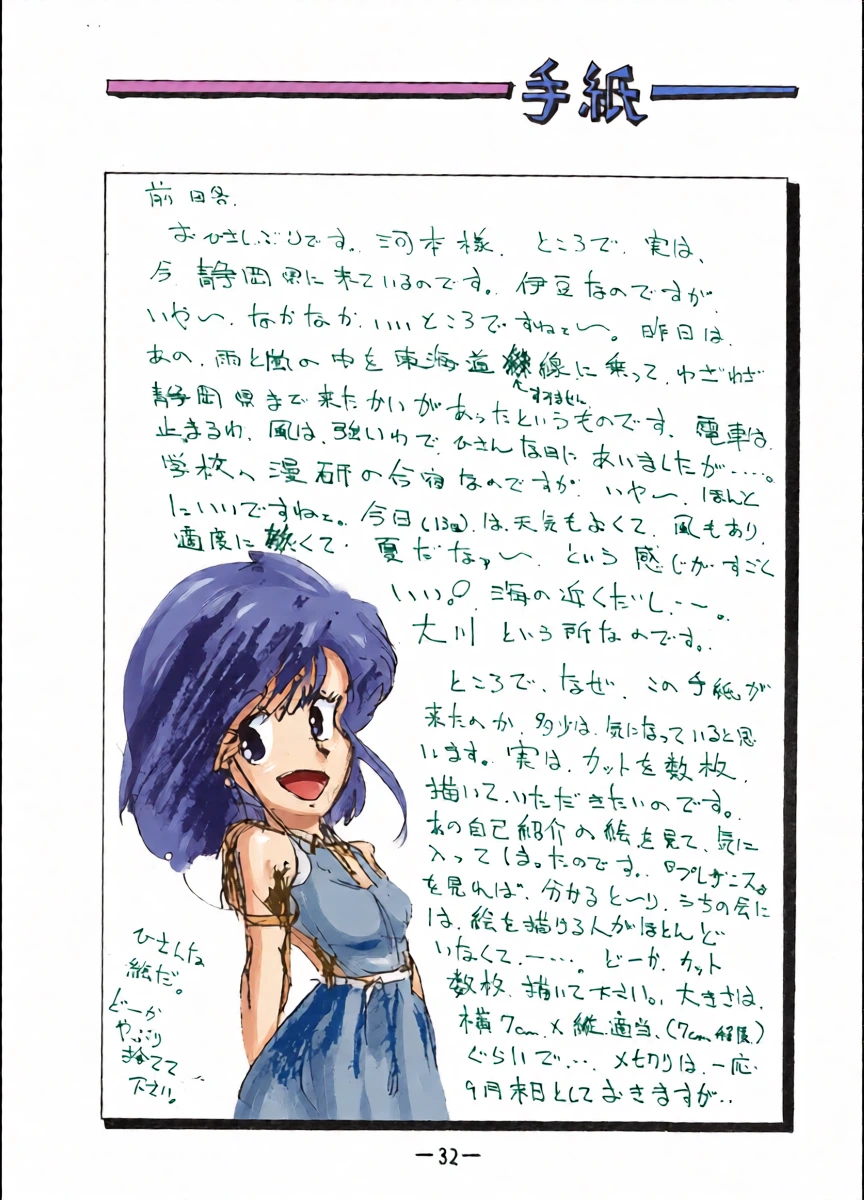 手紙
前略.
おひさしぶりです。河本様. ところで、実は、
今、静岡県に来ているのです。伊豆なのですが、
いや〜、なかなか、いいところですねェ〜。昨日は、
あの、雨と風の中を東海道線に乗って、わざわざ
すみません
静岡県まで来たかいがあったというものです、電車は、
止まるわ、風は、強いわで、ひさんな目にあいましたが……。
学校の漫研の合宿なのですが、いや〜、ほんと
にいいですねェ。今日(13日)は、天気もよくて、風もあり、
適度に軟くて、夏だなァ〜、という感じがすごく
いい。海の近くだし、ー〜。
大川という所なのです。
ところで、なぜ、この手紙が
来たのか、多少は、気になっていると思
います。実は、カットを数枚、
描いて、いただきたいのです。
あの自己紹介の絵を見て、気に
入ってしまったのです。『プレザニス』
を見れば、分かるとーり、うちの会に
は、絵を描ける人がほとんど
いなくて、ー…。どーか、カット
数枚、描いて下さい。大きさは、
横7cm×縦適当、(7cm程度)
ぐらいで…、〆切りは、一応
9月末日としておきますが..
ひさんな
絵だ。
どーか
やぶり
捨てて
下さい。
—32—